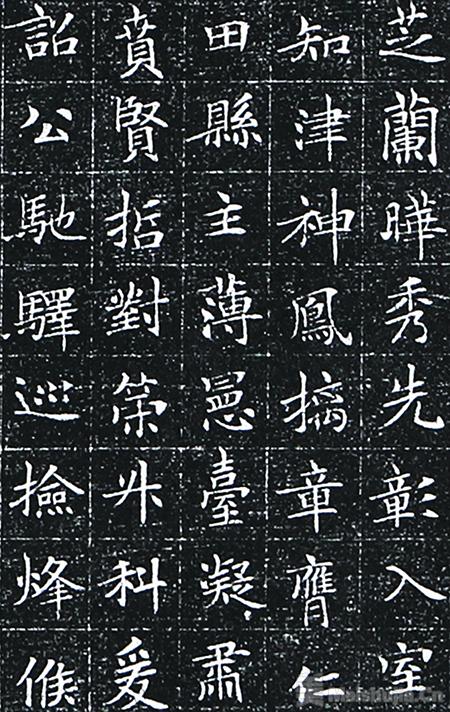 芝蘭曄秀先彰入室
知津神鳳摛章膺仁
田縣主薄邑臺凝肅
賁賢哲對策升科爰
詔公馳驛巡撿烽候